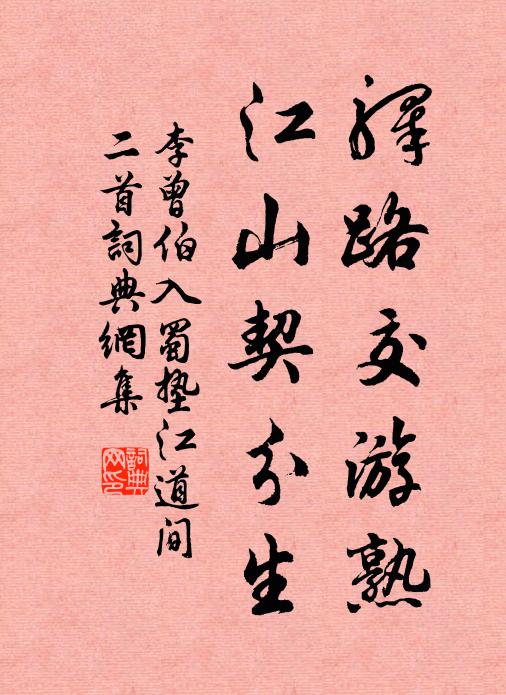 驛路交游熟
江山契分生
李曾伯入蜀墊江道间
二首詞典網集
詞典
网印